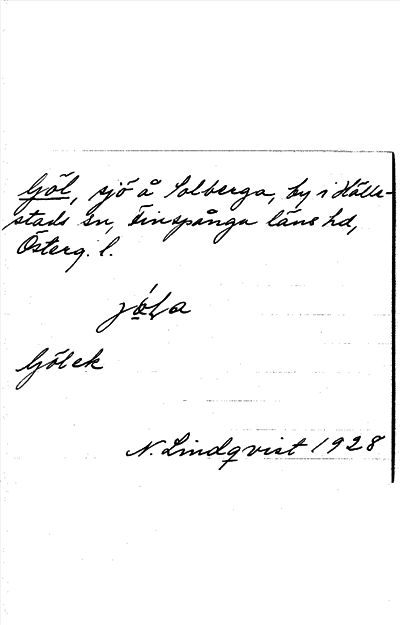 Göl, sjö å Solberga, by i Hälle-
stads sn, Finspånga läns hd,
Österg. l.
Gölek
N. Lindqvist 1928